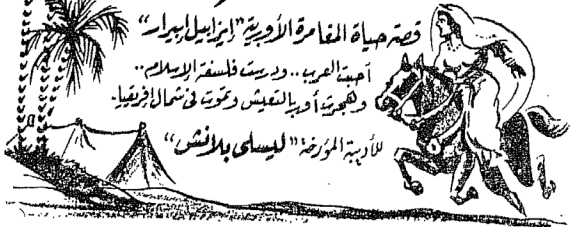 قصة حياة المغامرة الأوربية "إيزابيل إيبرار"
أحبت العرب .. ودرست فلسفة الإسلام ..
وهجرت أوربا لتعيش وتموت فى شمال إفريقيا .
للأديبة المؤرخة "ليسلى بلانش"